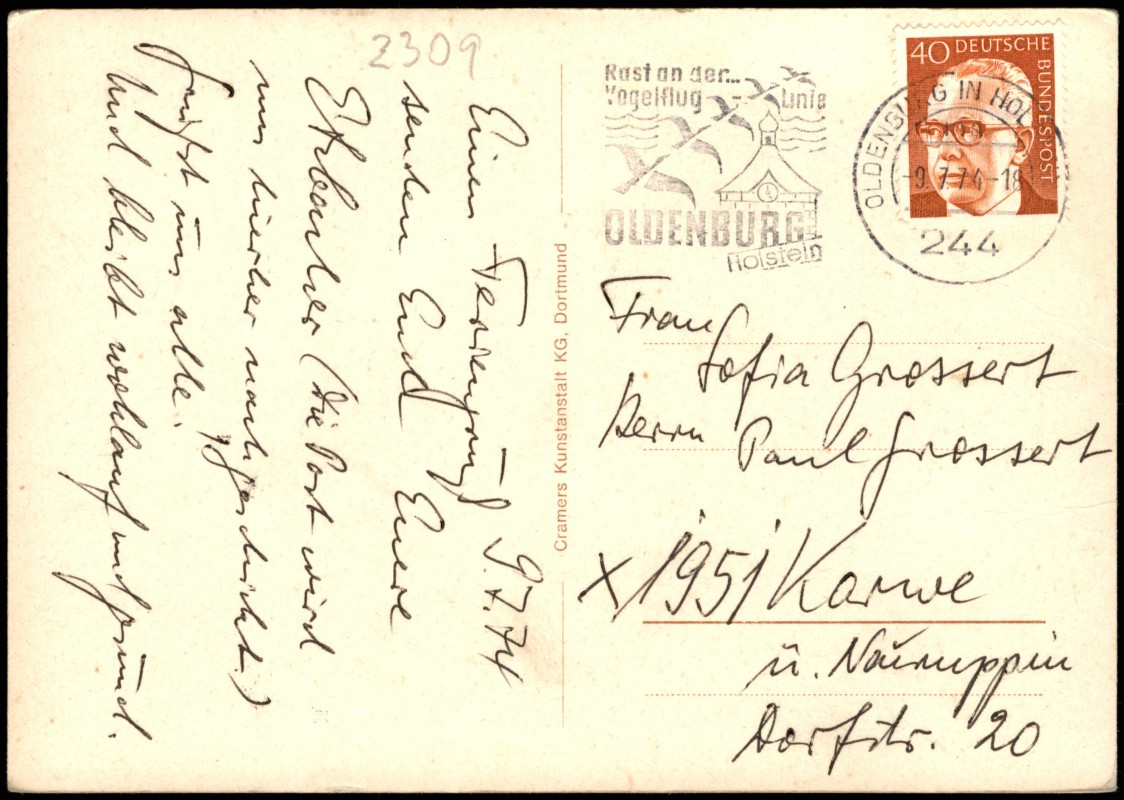 2309
Einen Feriengruß 9.7.74
senden Euch Eure
(Die Post wird
uns hierher nachgeschickt.)
Grüßt uns alle.
Und bleibt wohlauf und gesund.
Cramers Kunstanstalt KG, Dortmund
Rast an der...
Vogelfluglinie
OLDENBURG
Holstein
OLDENBURG IN HOL
-9.7.74-18
244
40 DEUTSCHE
BUNDESPOST
Frau
Sofia Grossert
Herrn Paul Grossert
x 1951 Karwe
ü. Neuruppin
Dorfstr. 20